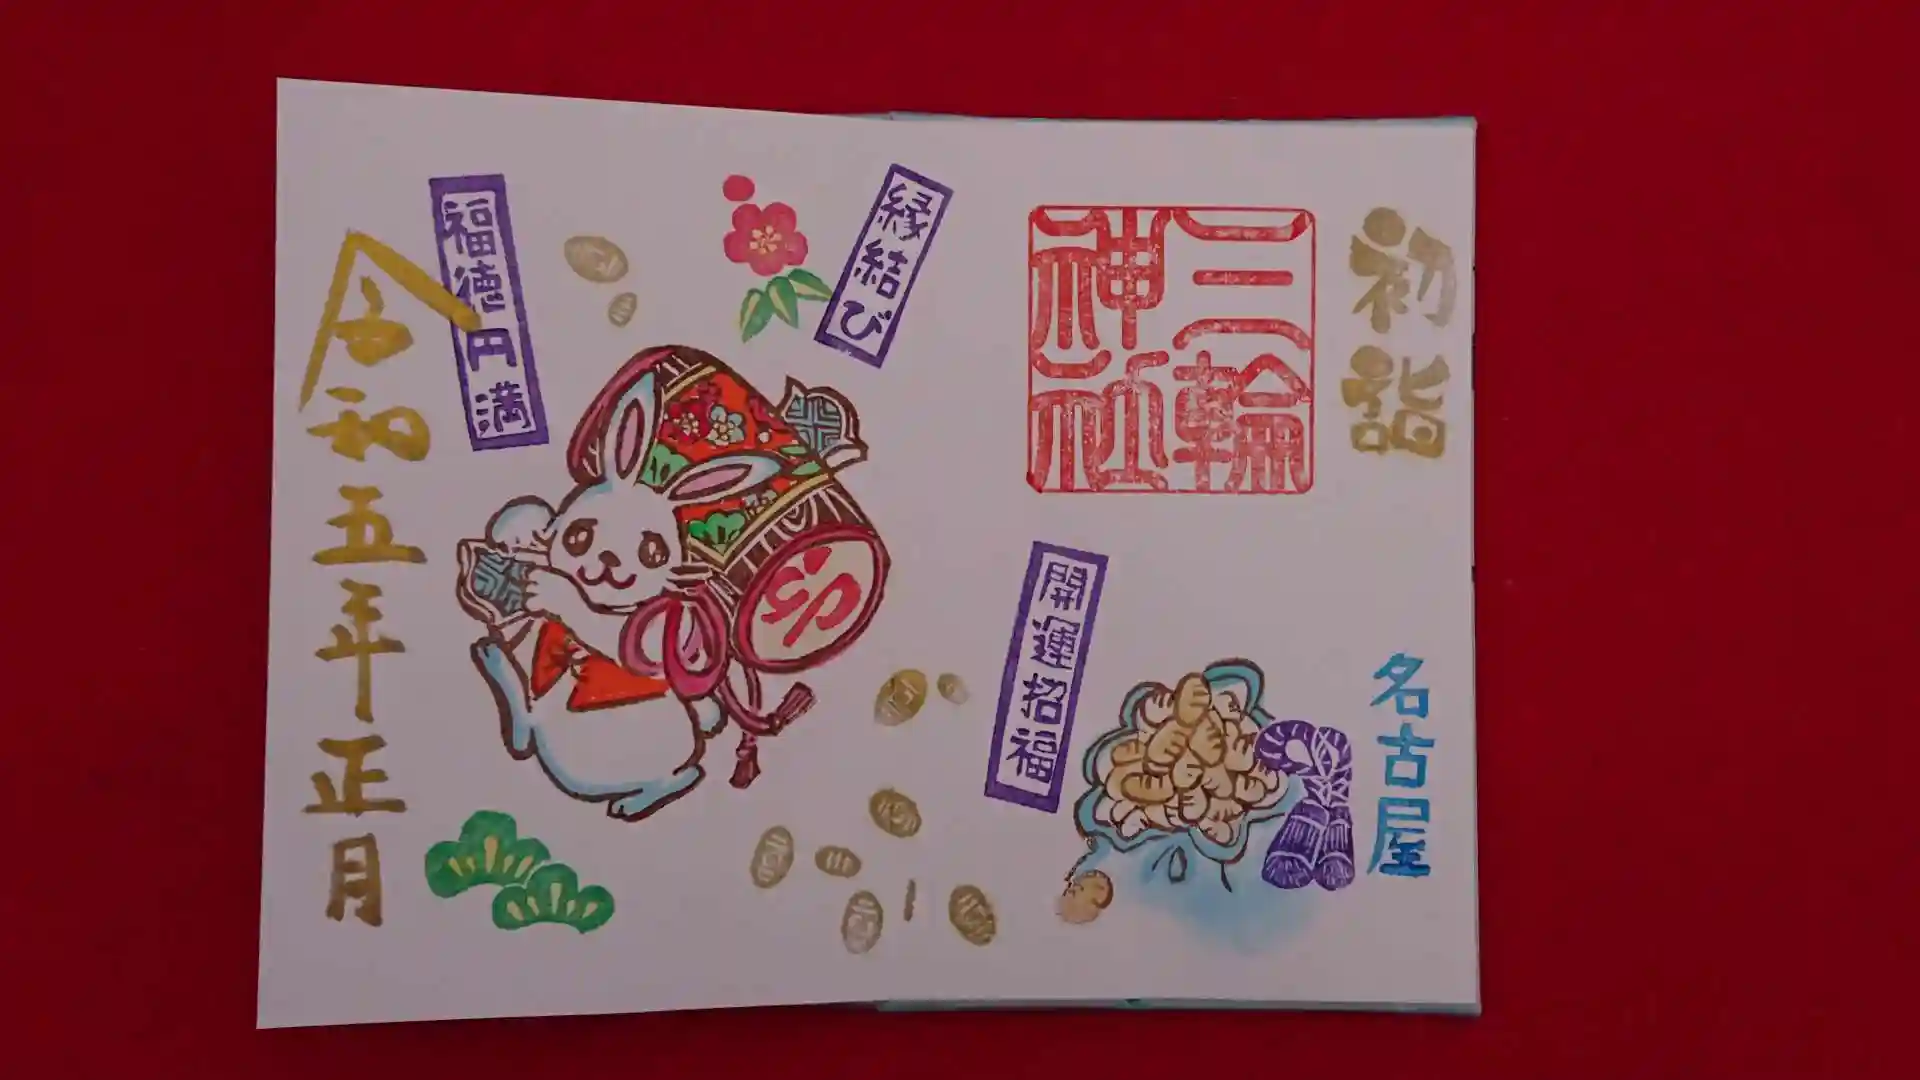 初詣
三輪
神社
名古屋
開運招福
縁結び
卯
福徳円満
令和五年正月